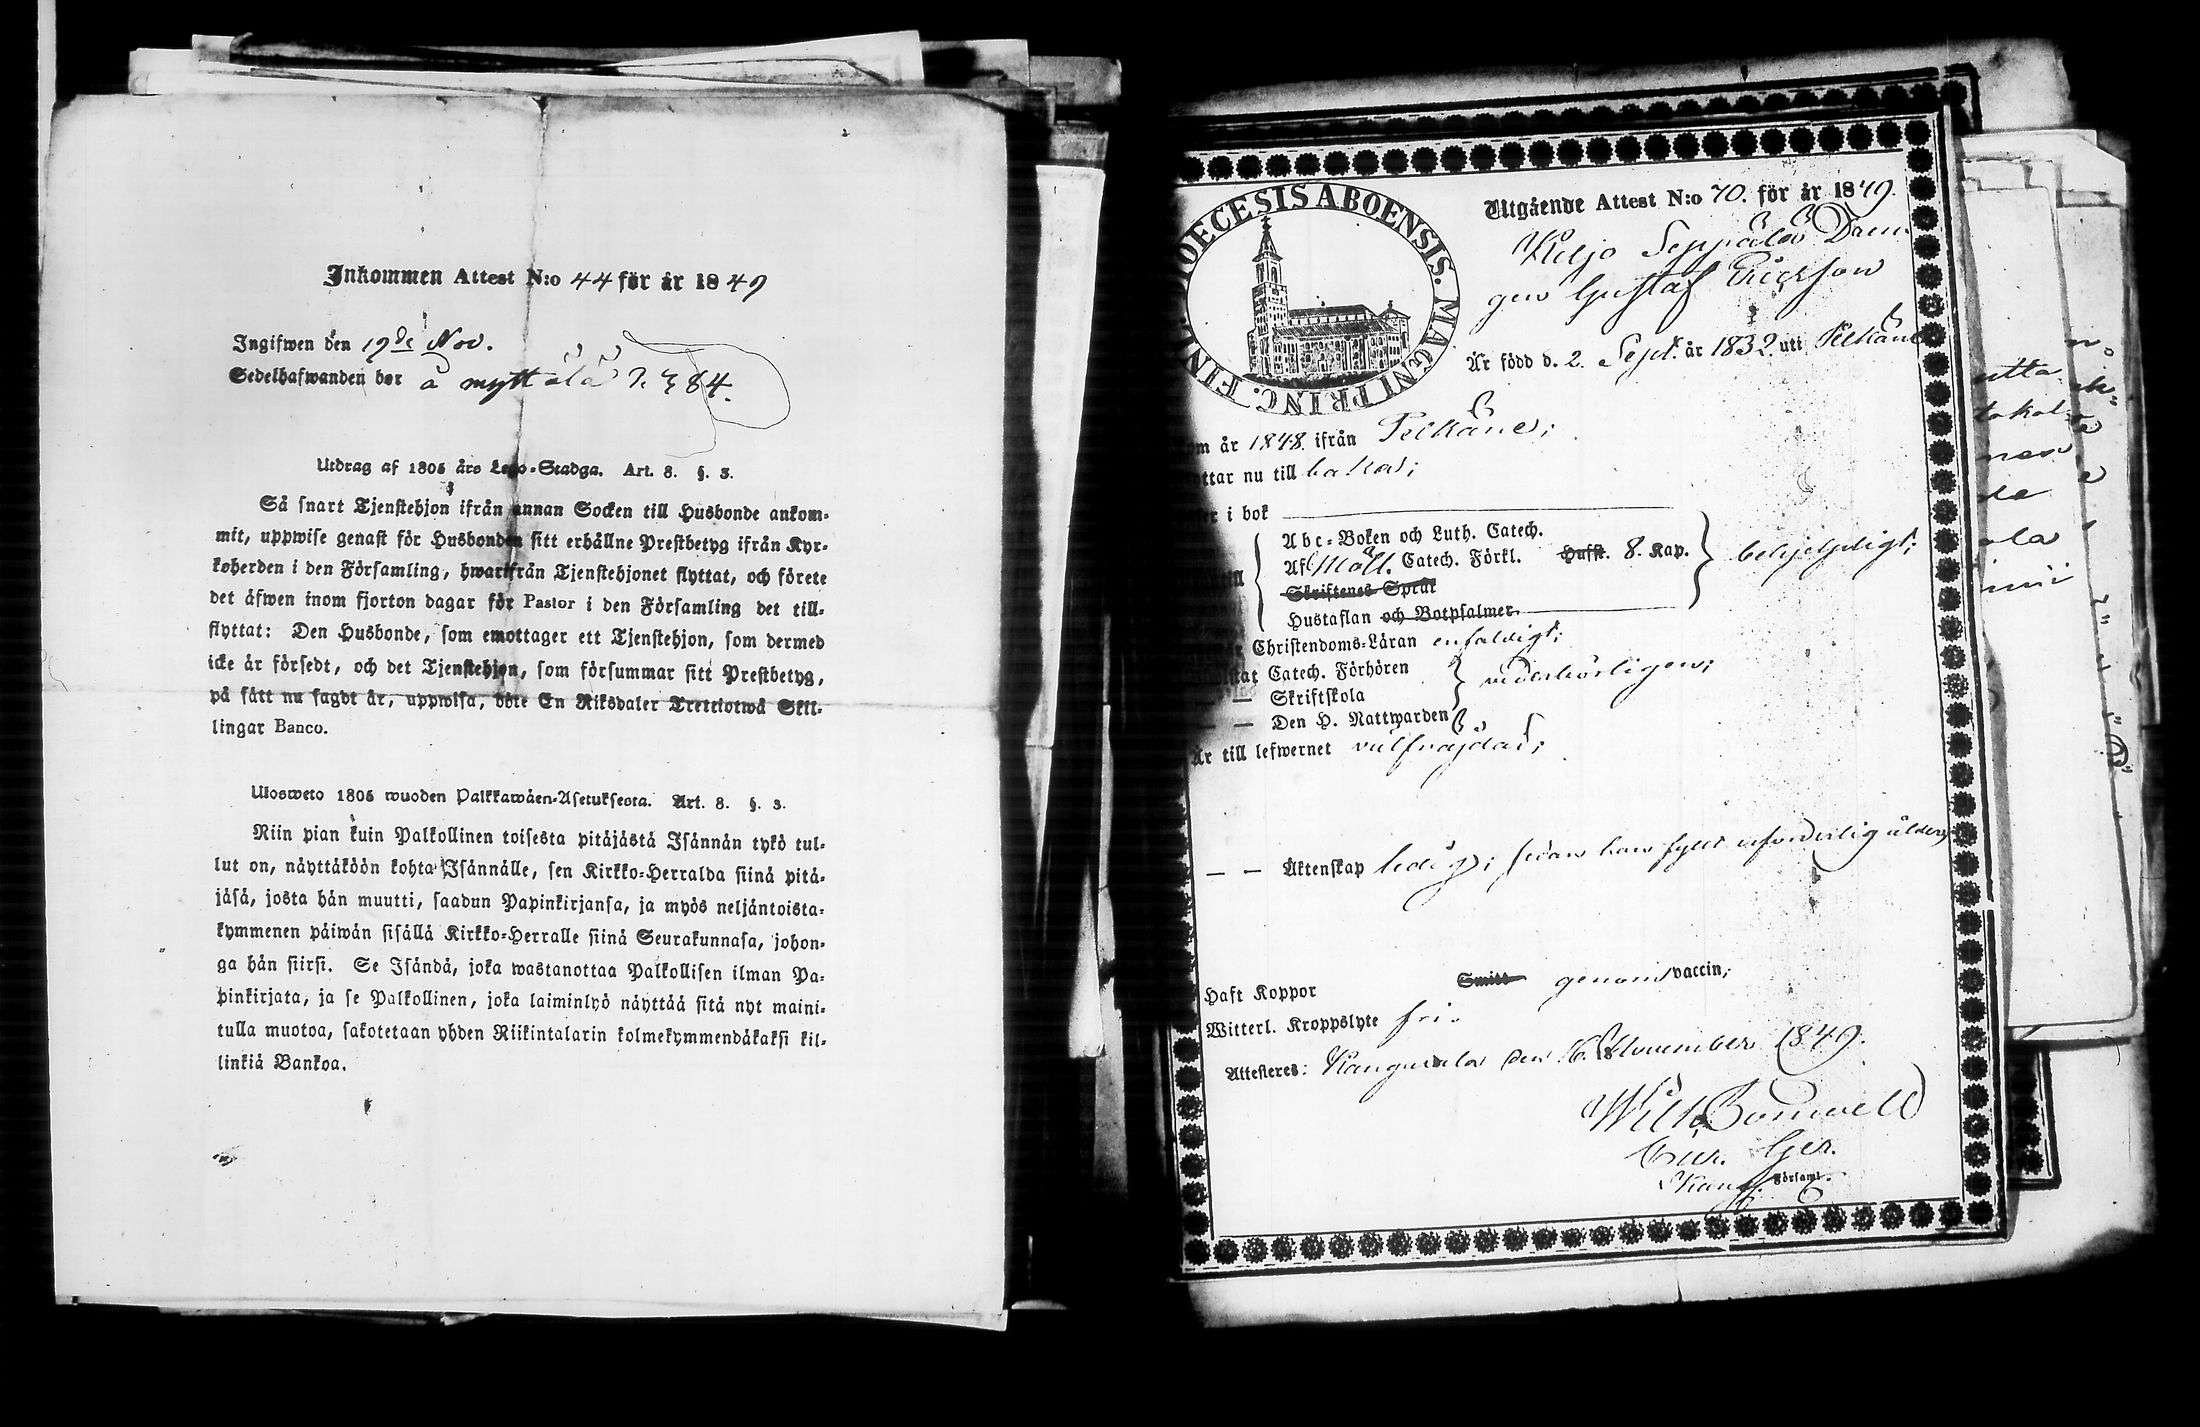 Inkommen Attest N:o 44 för år 1849
Ingifwen den 19de Nov.
Sedelhafwanden bor å myttälä
Utdrag af 1805 års Lego-Stadga. Art. 8. §. 3.
Så snart Tjenstehjon ifrån annan Socken till Husbonde ankom-
mit, uppwise genast för Husbonden sitt erhållne Prestbetyg ifrån Kyr-
koherden i den Församling, hwarifrån Tjenstehjonet flyttat, och förete
det äfwen inom fjorton dagar för Pastor i den Församling det till-
flyttat: Den Husbonde, som emottager ett Tjenstehjon, som dermed
icke är försedt, och det Tjenstehjon, som försummar sitt Prestbetyg,
på sätt nu sagdt är, uppwisa, böte En Riksdaler Trettiotwå Skil-
lingar Banco.
Ulosweto 1805 wuoden Palkkawäen-Asetuksesta. Art. 8. §. 3.
Niin pian kuin Palkollinen toisesta pitäjästä Isännän tykö tul-
lut on, näyttäköön kohta Isännälle, sen Kirkko-Herralda siinä pitä-
jäsä, josta hän muutti, saadun Papinkirjansa, ja myös neljäntoista-
kymmenen päiwän sisällä Kirkko-Herralle siinä Seurakunnasa, johon-
ga hän siirsi. Se Isändä, joka wastanottaa Palkollisen ilman Pa-
pinkirjata, ja se Palkollinen, joka laiminlyö näyttää sitä nyt maini-
tulla muotoa, sakotetaan yhden Riikintalarin kolmekymmendäkaksi kil-
linkiä Bankoa.
DIOECESIS ABOENSIS. MAGNI PRINC. FINL.
Utgående Attest N:o 70. för år 1849.
Keljo Seppälä Dren-
gen Gustaf Ericksson
Är född d. 2. Sept. år 1832 uti Pelkäne
om år 1848. ifrån Pelkäne;
ttar nu till baka;
i bok
Abc-Boken och Luth. Catech.
Af Möll. Catech. Förkl. Husst. 8. Kap. behjelpligt;
Skriftenes Språk
Hustaflan och Botpsalmer.
Christendoms-Läran enfaldigt;
Catech. Förhören
— Skriftskola wederbörligen;
— — Den H. Nattwarden
Är till lefwernet välfräjdad;
— — Äktenskap ledig; sedan han fyllt erforderlig ålder;
Haft Koppor Smitt genom vaccin;
Witterl. Kroppslyte fri.
Attesteres: Kangasala den 16. November 1849.
Wilh. Bonuvell
Cur. Ger.
Kang. Församl.